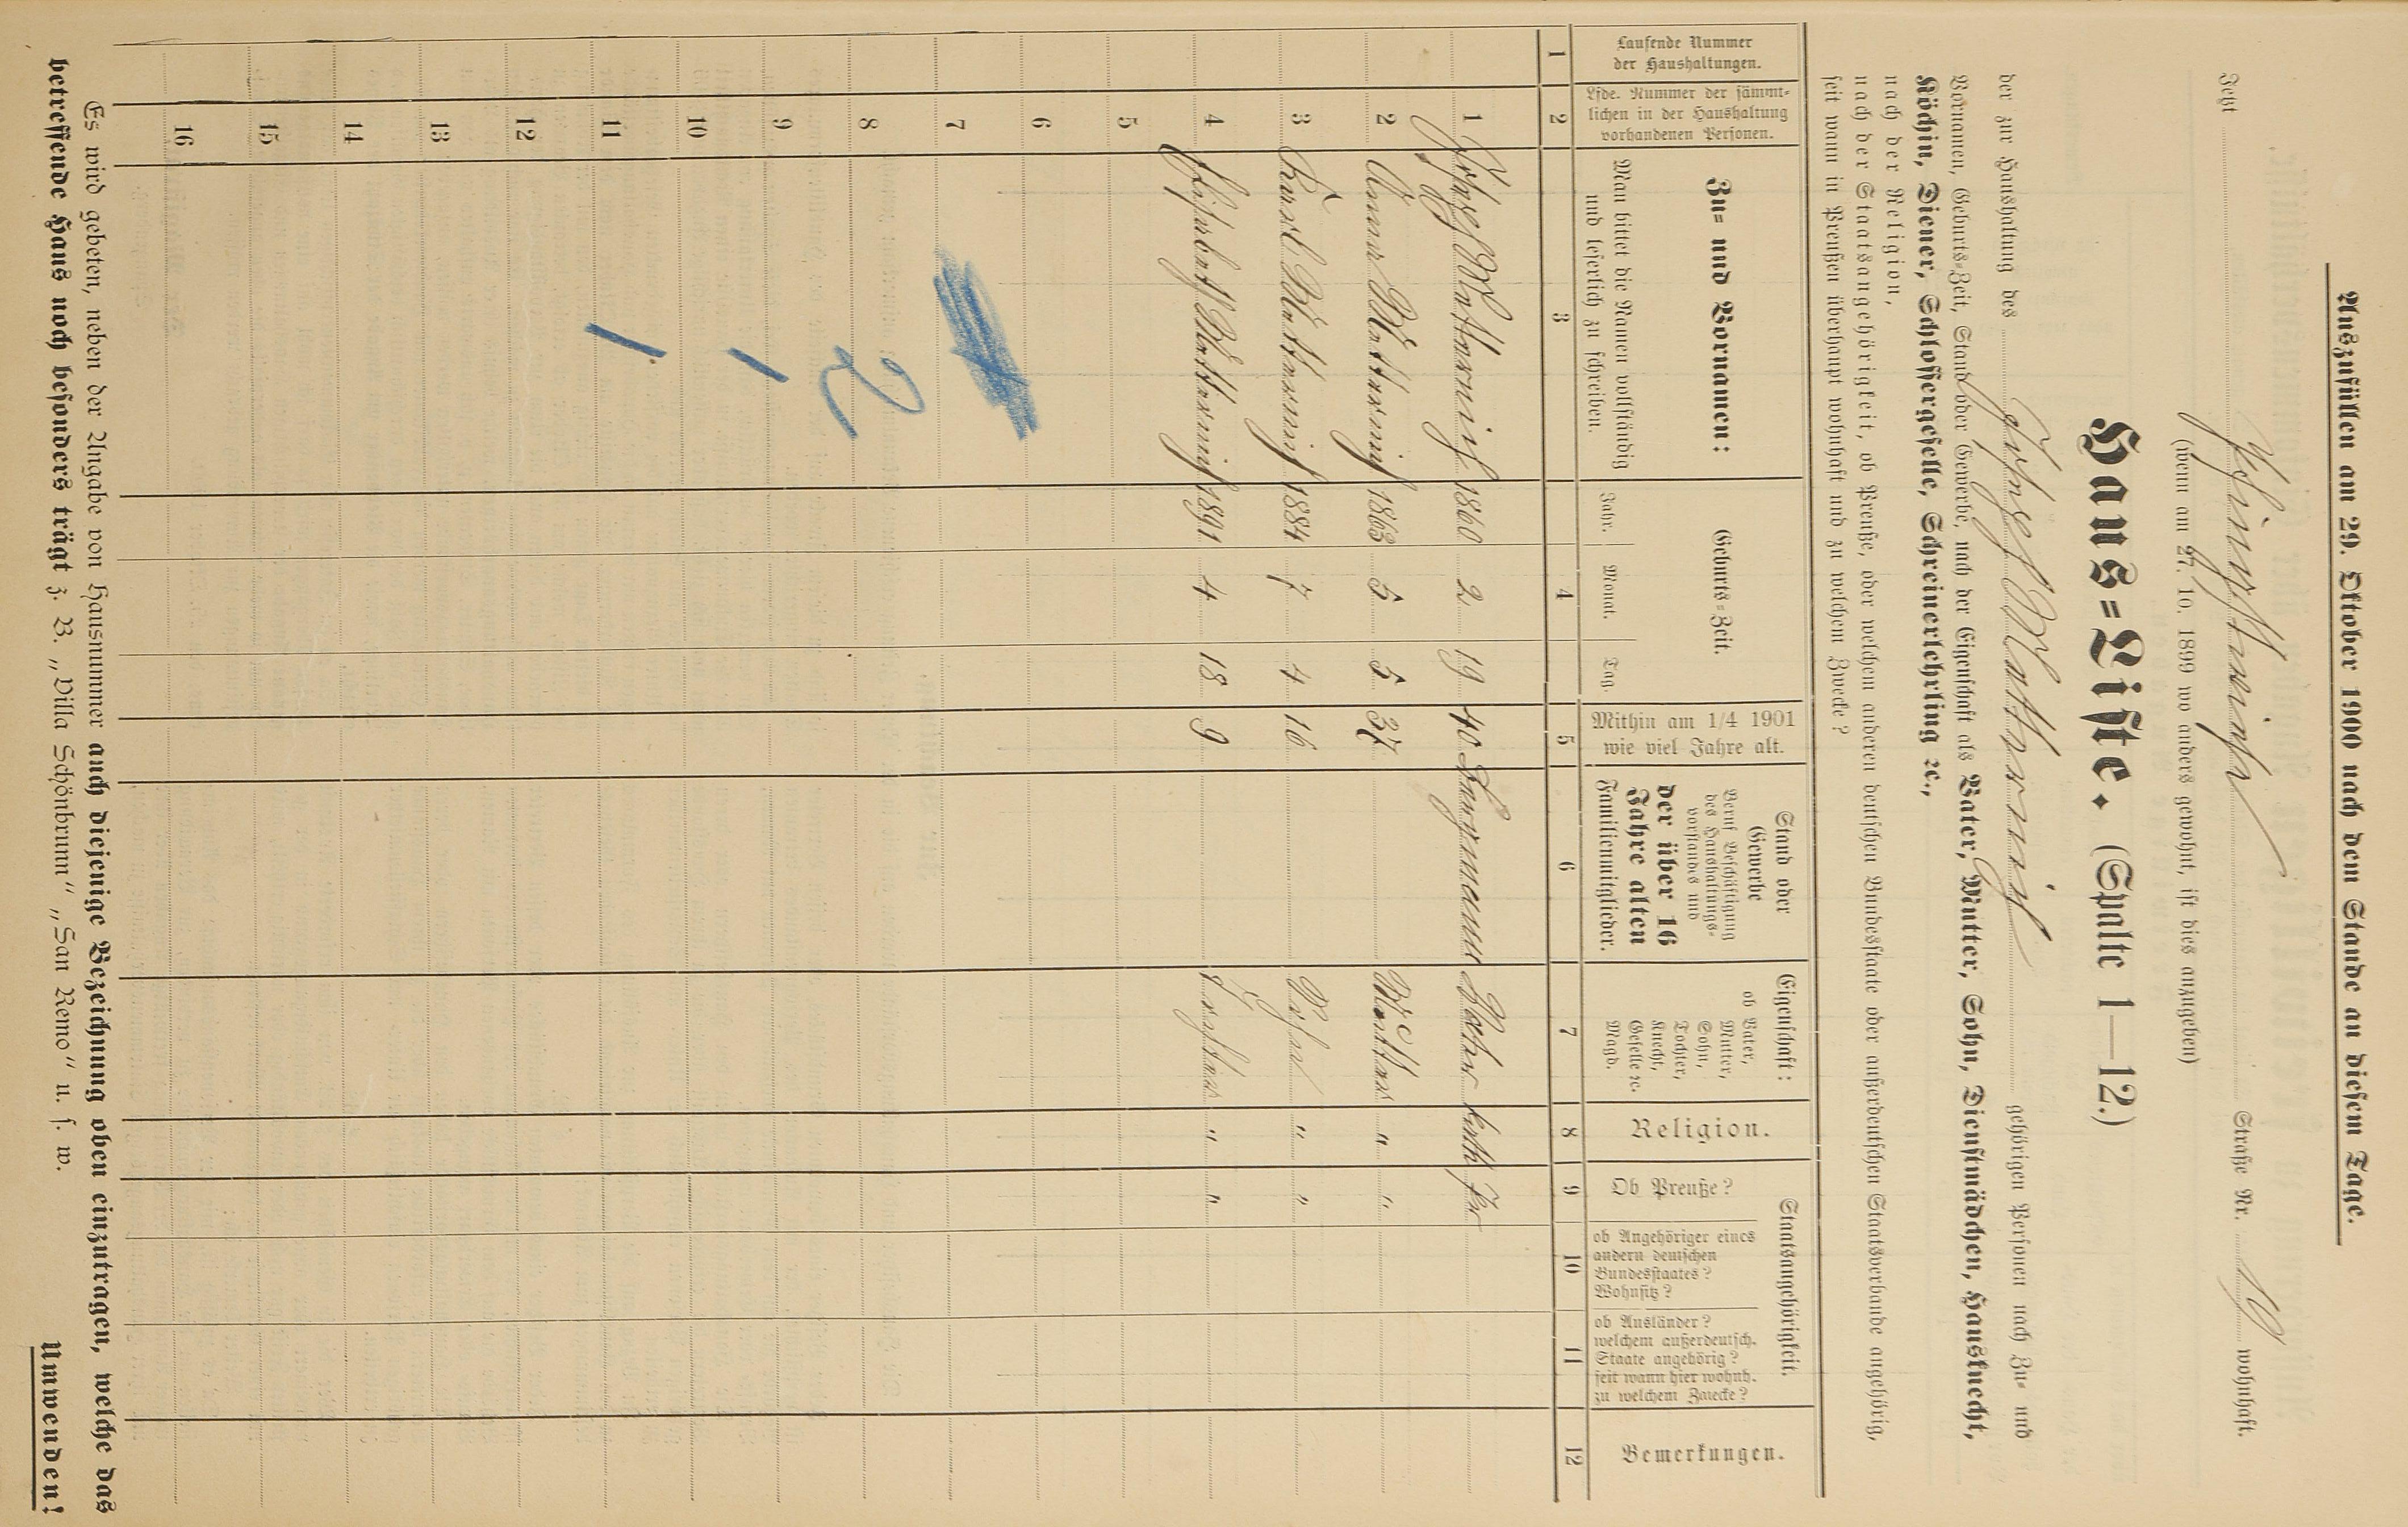 Auszufüllen am 29. Oktober 1900 nach dem Stande an diesem Tage.
Jetzt Straße Nr. 19 wohnhaft.
(wenn am 27. 10. 1899 wo anders gewohnt, ist dies anzugeben)
Haus=Liste. (Spalte 1—12.)
der zur Haushaltung des Josef Matternich gehörigen Personen nach Zu= und
Vornamen, Geburts=Zeit, Stand oder Gewerbe, nach der Eigenschaft als Vater, Mutter, Sohn, Dienstmädchen, Hausknecht,
Köchin, Diener, Schlossergeselle, Schreinerlehrling ꝛc.,
nach der Religion,
nach der Staatsangehörigkeit, ob Preuße, oder welchem anderen deutschen Bundesstaate oder außerdeutschen Staatsverbande angehörig,
seit wann in Preußen überhaupt wohnhaft und zu welchem Zwecke?
Laufende Nummer
der Haushaltungen.
Lfde. Nummer der sämmt=
lichen in der Haushaltung
vorhandenen Personen.
Zu= und Vornamen:
Man bittet die Namen vollständig
und leserlich zu schreiben.
Geburts=Zeit.
Jahr. Monat. Tag.
Mithin am 1/4 1901
wie viel Jahre alt.
Stand oder
Gewerbe
Beruf Beschäftigung
des Haushaltungs=
vorstandes und
der über 16
Jahre alten
Familienmitglieder.
Eigenschaft:
ob Vater,
Mutter,
Sohn,
Tochter,
Knecht,
Geselle ꝛc.
Magd.
Religion.
Staatsangehörigkeit.
Ob Preuße?
ob Angehöriger eines
andern deutschen
Bundesstaates?
Wohnsitz?
ob Ausländer?
welchem außerdeutsch.
Staate angehörig?
seit wann hier wohnh.
zu welchem Zwecke?
Bemerkungen.
1 2 3 4 5 6 7 8 9 10 11 12
1 Josef Matternich 1860 2 19 40 Bergmann Vater kath Pr
2 Anna Matternich 1863 5 5 37 Mutter " "
3 Karl Matternich 1884 7 4 16 Sohn " "
4 Elisabeth Matternich 1891 4 18 9 Tochter " "
5
6
7
8 2
9 1
10
11 1
12
13
14
15
16
Es wird gebeten, neben der Angabe von Hausnummer auch diejenige Bezeichnung oben einzutragen, welche das
betreffende Haus noch besonders trägt z. B. „Villa Schönbrunn" „San Remo" u. s. w.
Umwenden!